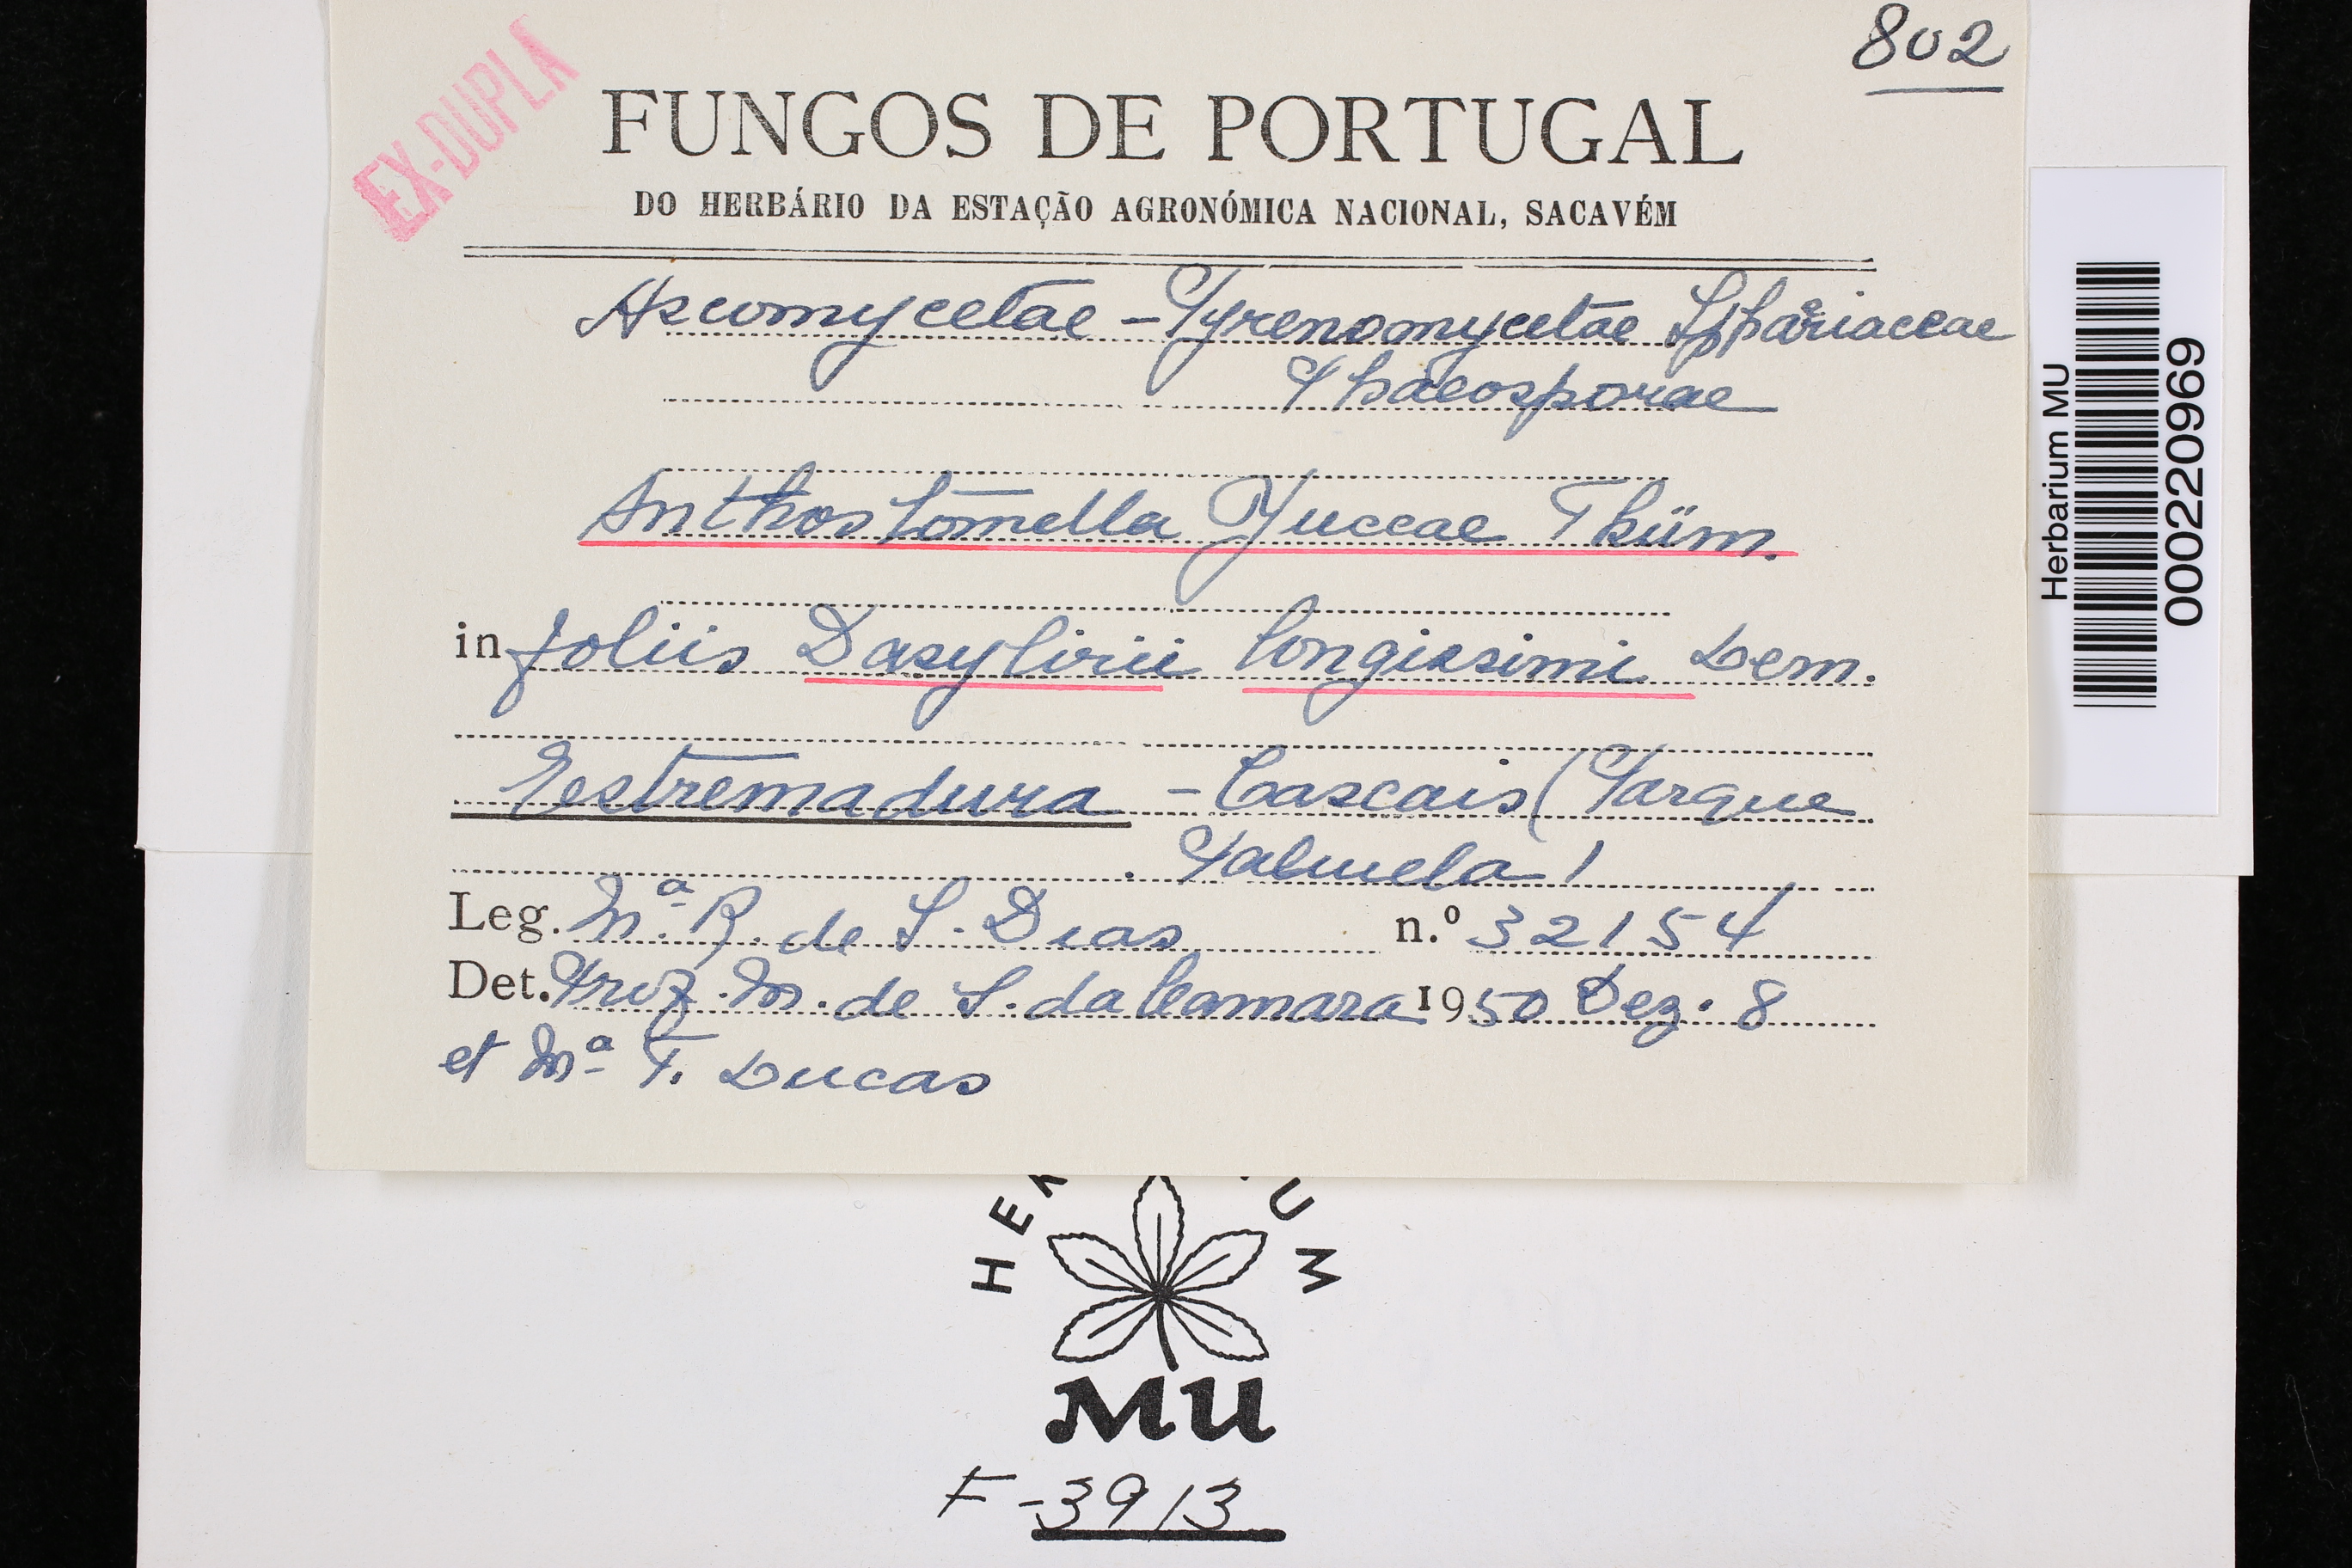 802
EX-DUPLA
FUNGOS DE PORTUGAL
DO HERBÁRIO DA ESTAÇÃO AGRONÓMICA NACIONAL, SACAVÉM
Ascomycetae - Pyrenomycetae Sphaeriaceae
Phaeosporae
Anthostomella Yuccae Thüm.
in foliis Dasylirii longissimi Lem.
Estremadura - Cascais (Parque
Palmela)
Leg. Mª. R. de S. Dias n.º 32154
Det. Proz. M. de S. da Camara 1950 Dez. 8
et Mª T. Lucas
Herbarium MU
000220969
MU
F-3913